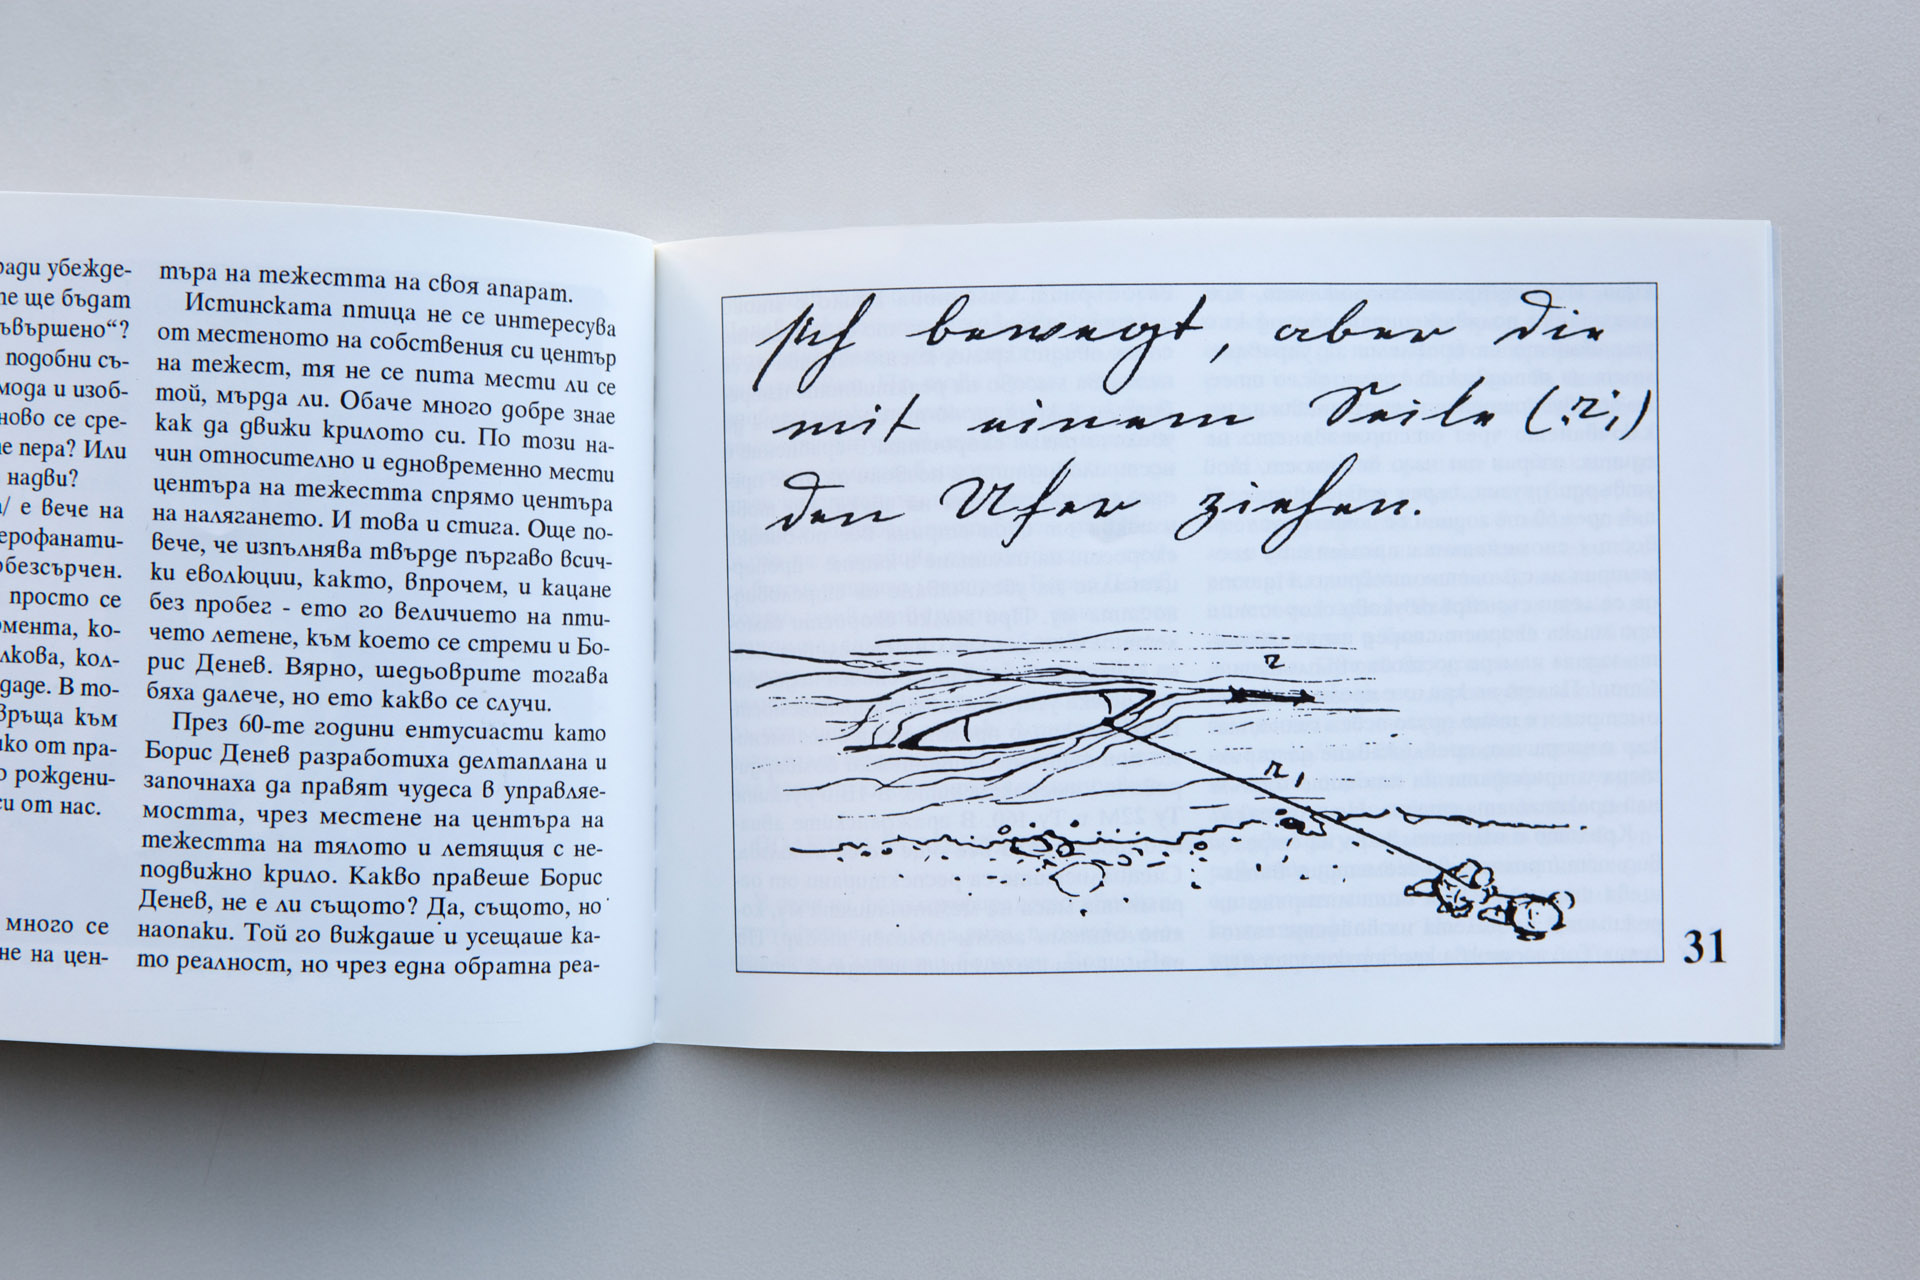 ради убежде-
те ще бъдат
съвършено“?
подобни съ-
мода и изоб-
ново се сре-
пера? Или
надви?
е вече на
аерофанати-
обезсърчен.
просто се
момента, ко-
лкова, кол-
даде. В то-
връща към
от пра-
рождени-
си от нас.
много се
не на цен-
търа на тежестта на своя апарат.
Истинската птица не се интересува
от местеното на собствения си център
на тежест, тя не се пита мести ли се
той, мърда ли. Обаче много добре знае
как да движи крилото си. По този на-
чин относително и едновременно мести
центъра на тежестта спрямо центъра
на налягането. И това и стига. Още по-
вече, че изпълнява твърде пъргаво всич-
ки еволюции, както, впрочем, и кацане
без пробег - ето го величието на пти-
чето летене, към което се стреми и Бо-
рис Денев. Вярно, шедьоврите тогава
бяха далече, но ето какво се случи.
През 60-те години ентусиасти като
Борис Денев разработиха делтаплана и
започнаха да правят чудеса в управляе-
мостта, чрез местене на центъра на
тежестта на тялото и летящия с не-
подвижно крило. Какво правеше Борис
Денев, не е ли същото? Да, същото, но
наопаки. Той го виждаше и усещаше ка-
то реалност, но чрез една обратна реа-
sich bewegt, aber die
mit einem Seile (r₁)
den Ufer ziehen.
r
r₁
31